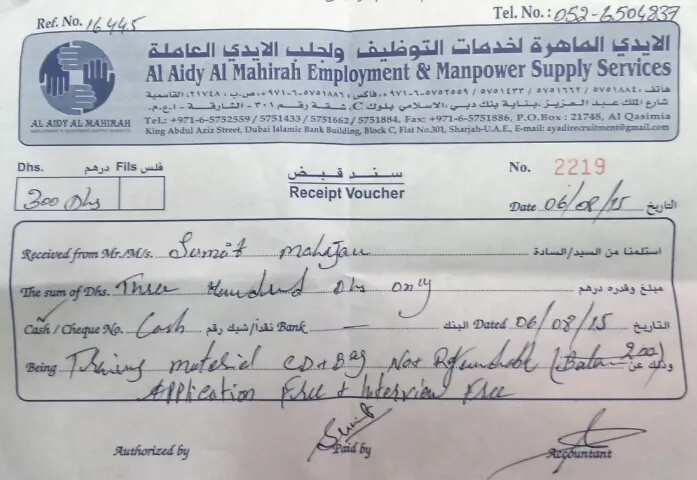 Ref. No. 16445
Tel. No.: 052-6504837
الايدي الماهرة لخدمات التوظيف ولجلب الايدي العاملة
Al Aidy Al Mahirah Employment & Manpower Supply Services
شارع الملك عبد العزيز, بناية بنك دبي الاسلامي بلوك C, شقة رقم ٣٠١ - الشارقة - ا.ع.م.
Tel.: +971-6-5752559 / 5751433 / 5751662 / 5751884, Fax: +971-6-5751886, P.O.Box : 21748, Al Qasimia
King Abdul Aziz Street, Dubai Islamic Bank Building, Block C, Flat No.301, Sharjah-U.A.E, E-mail: ayadirecruitment@gmail.com
AL AIDY AL MAHIRAH
Dhs. درهم Fils فلس
300 Dhs
سند قبض
Receipt Voucher
No. 2219
Date 06/08/15 التاريخ
Received from Mr./M/s. Sumit mahajan استلمنا من السيد/السادة
The sum of Dhs. Three Hundred Dhs only مبلغ وقدره درهم
Cash / Cheque No. Cash نقدا/شيك رقم Bank — البنك Dated 06/08/15 التاريخ
Being Training material CD + Bag Not Refundable (Balan 200) وذلك عن
Application Free + Interview Free
Authorized by
Paid by
Accountant